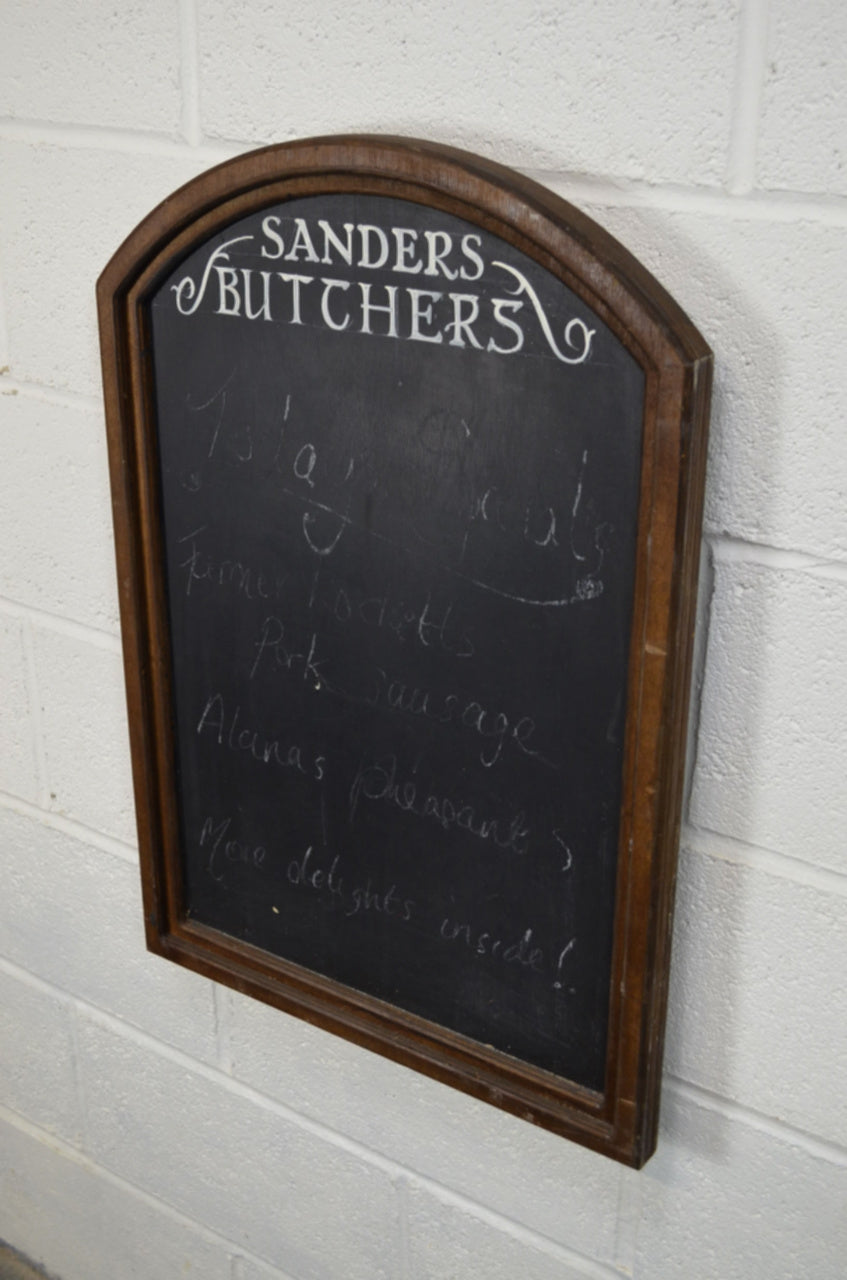 SANDERS
BUTCHERS
Islay Specials
Farmer
Pork sausage
Alanas pheasants
More delights inside!